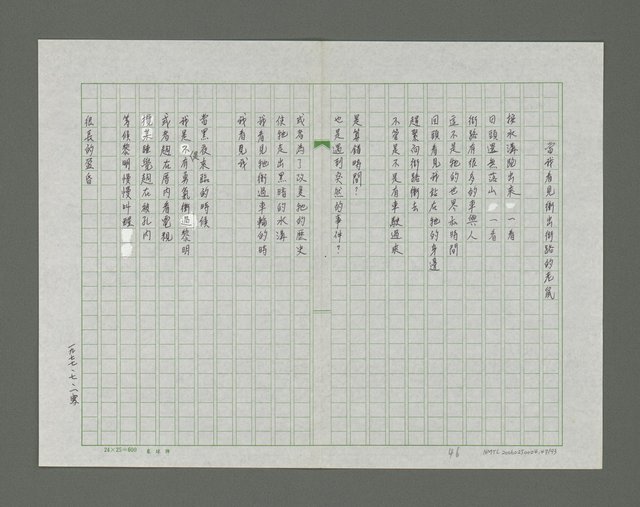 當我看見衝出街路的老鼠
從水溝跑出來 一看
回頭還無落山 一看
街路有很多的車與人
這不是牠的世界和時間
回頭看見我站在牠的身邊
趕緊向街路衝去
不管是不是有車駛過來
是算錯時間？
也是遇到突然的事件？
或者為了改變牠的歷史
使牠走出黑暗的水溝
我看見牠衝過車輪的時
我看見我
當黑夜來臨的時候
我是不有勇氣衝過黎明
或者趟在厝內看電視
睡覺趟在被孔內
等候黎明慢慢叫醒
很長的盈昏
一九七七、七、一 寒
24×25=600
46